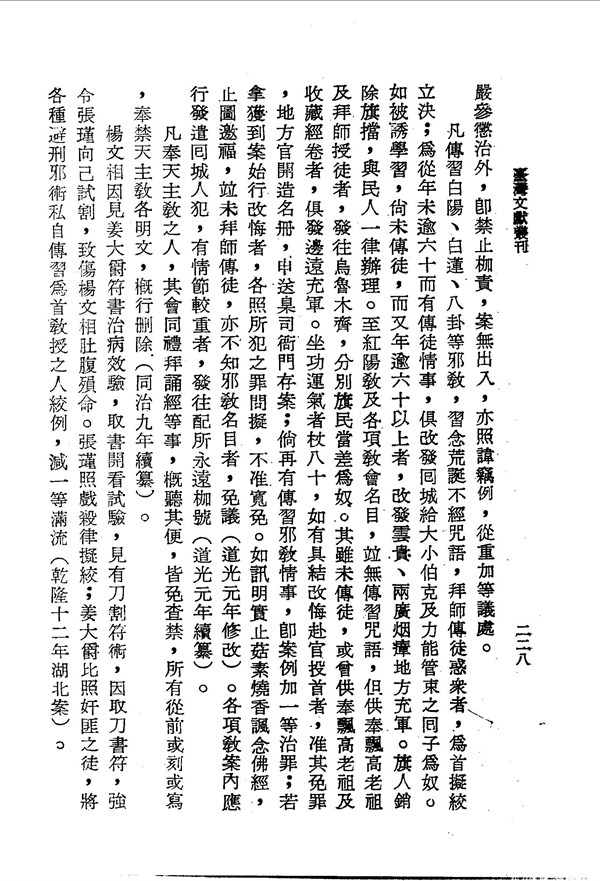 臺灣文獻叢刊
二二八
嚴參懲治外，卽禁止枷責，案無出入，亦照諱竊例，從重加等議處。
凡傳習白陽、白蓮、八卦等邪教，習念荒誕不經咒語，拜師傳徒惑衆者，爲首擬絞
立決；爲從年未逾六十而有傳徒情事，俱改發囘城給大小伯克及力能管束之囘子爲奴。
如被誘學習，尙未傳徒，而又年逾六十以上者，改發雲貴、兩廣烟瘴地方充軍。旗人銷
除旗擋，與民人一律辦理。至紅陽敎及各項敎會名目，竝無傳習咒語，但供奉飄高老祖
及拜師授徒者，發往烏魯木齊，分別旗民當差爲奴。其雖未傳徒，或曾供奉飄高老祖及
收藏經卷者，俱發邊遠充軍。坐功運氣者杖八十，如有具結改悔赴官投首者，准其免罪
，地方官開造名册，申送臬司衙門存案；倘再有傳習邪敎情事，卽案例加一等治罪；若
拿獲到案始行改悔者，各照所犯之罪問擬，不准寬免。如訊明實止茹素燒香諷念佛經，
止圖邀福，竝未拜師傳徒，亦不知邪敎名目者，免議（道光元年修改）。各項敎案內應
行發遣囘城人犯，有情節較重者，發往配所永遠枷號（道光元年續纂）。
凡奉天主敎之人，其會同禮拜誦經等事，槪聽其便，皆免查禁，所有從前或刻或寫
，奉禁天主敎各明文，槪行刪除（同治九年續纂）。
楊文相因見姜大爵符書治病效驗，取書開看試驗，見有刀割符術，因取刀書符，強
令張瑾向己試割，致傷楊文相肚腹殞命。張瑾照戲殺律擬絞；姜大爵比照奸匪之徒，將
各種避刑邪術私自傳習爲首敎授之人絞例，減一等滿流（乾隆十二年湖北案）。